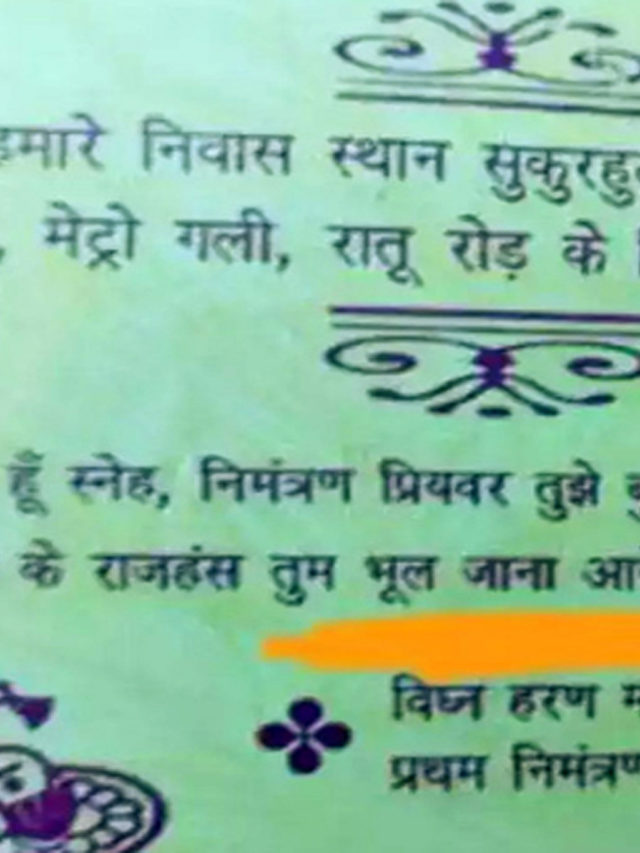 हमारे निवास स्थान सुकुरहु
, मेट्रो गली, रातू रोड़ के
हूँ स्नेह, निमंत्रण प्रियवर तुझे
के राजहंस तुम भूल जाना आ
विघ्न हरण म
प्रथम निमंत्रण